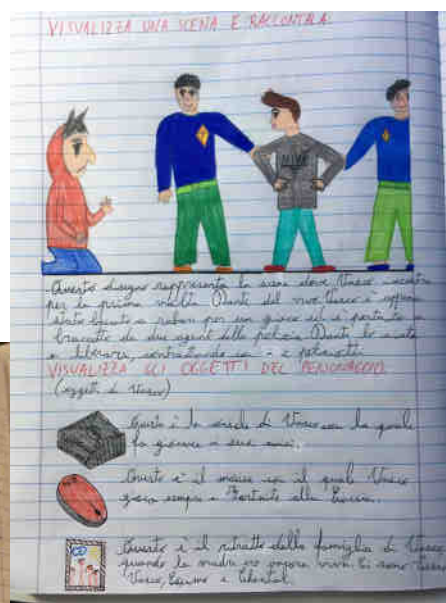 VISUALIZZA UNA SCENA E RACCONTALA
NIKE
Questo disegno rappresenta la scena dove Vasco incontra
per la prima volta Dante del vive. Vasco è appena
stato a rubare per un gioco ed è portato a
braccetto da due agenti della polizia. Dante lo aiuta
a liberarsi, con i poliziotti
VISUALIZZA GLI OGGETTI DEL PERSONAGGIO
(oggetti di Vasco)
Questa è la di Vasco con la quale
fa giocare i suoi amici.
Questo è il mouse con il quale Vasco
gioca sempre a Fortnite alla
Questo è il ritratto della famiglia di Vasco
quando la madre era ancora viva. Ci sono
Vasco, e